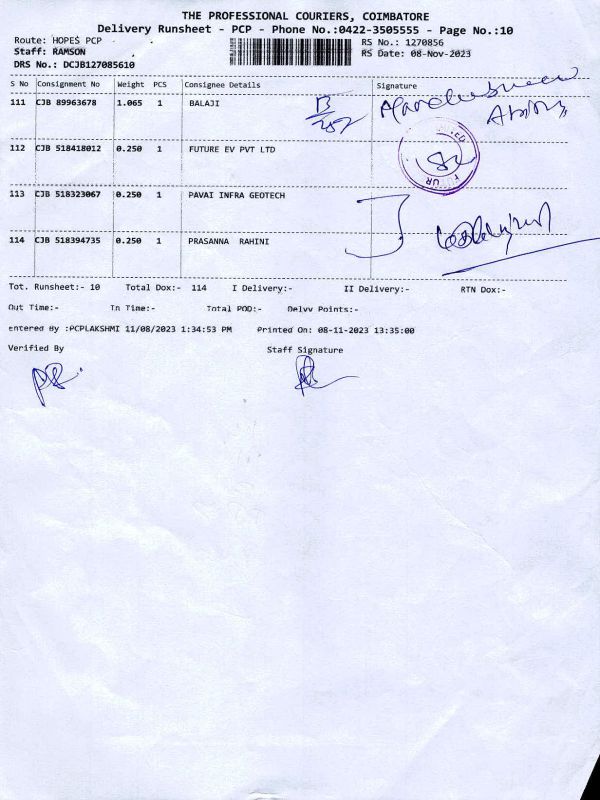 THE PROFESSIONAL COURIERS, COIMBATORE
Delivery Runsheet - PCP - Phone No.:0422-3505555 - Page No.:10
Route: HOPES PCP
RS No.: 1270856
Staff: RAMSON
RS Date: 08-Nov-2023
DRS No.: DCJB127085610
S No Consignment No Weight PCS Consignee Details Signature
111 CJB 89963678 1.065 1 BALAJI
112 CJB 518418012 0.250 1 FUTURE EV PVT LTD
113 CJB 518323067 0.250 1 PAVAI INFRA GEOTECH
114 CJB 518394735 0.250 1 PRASANNA RAHINI
Tot. Runsheet:- 10 Total Dox:- 114 I Delivery:- II Delivery:- RTN Dox:-
Out Time:- In Time:- Total POD:- Delvy Points:-
Entered By :PCPLAKSHMI 11/08/2023 1:34:53 PM Printed On: 08-11-2023 13:35:00
Verified By Staff Signature